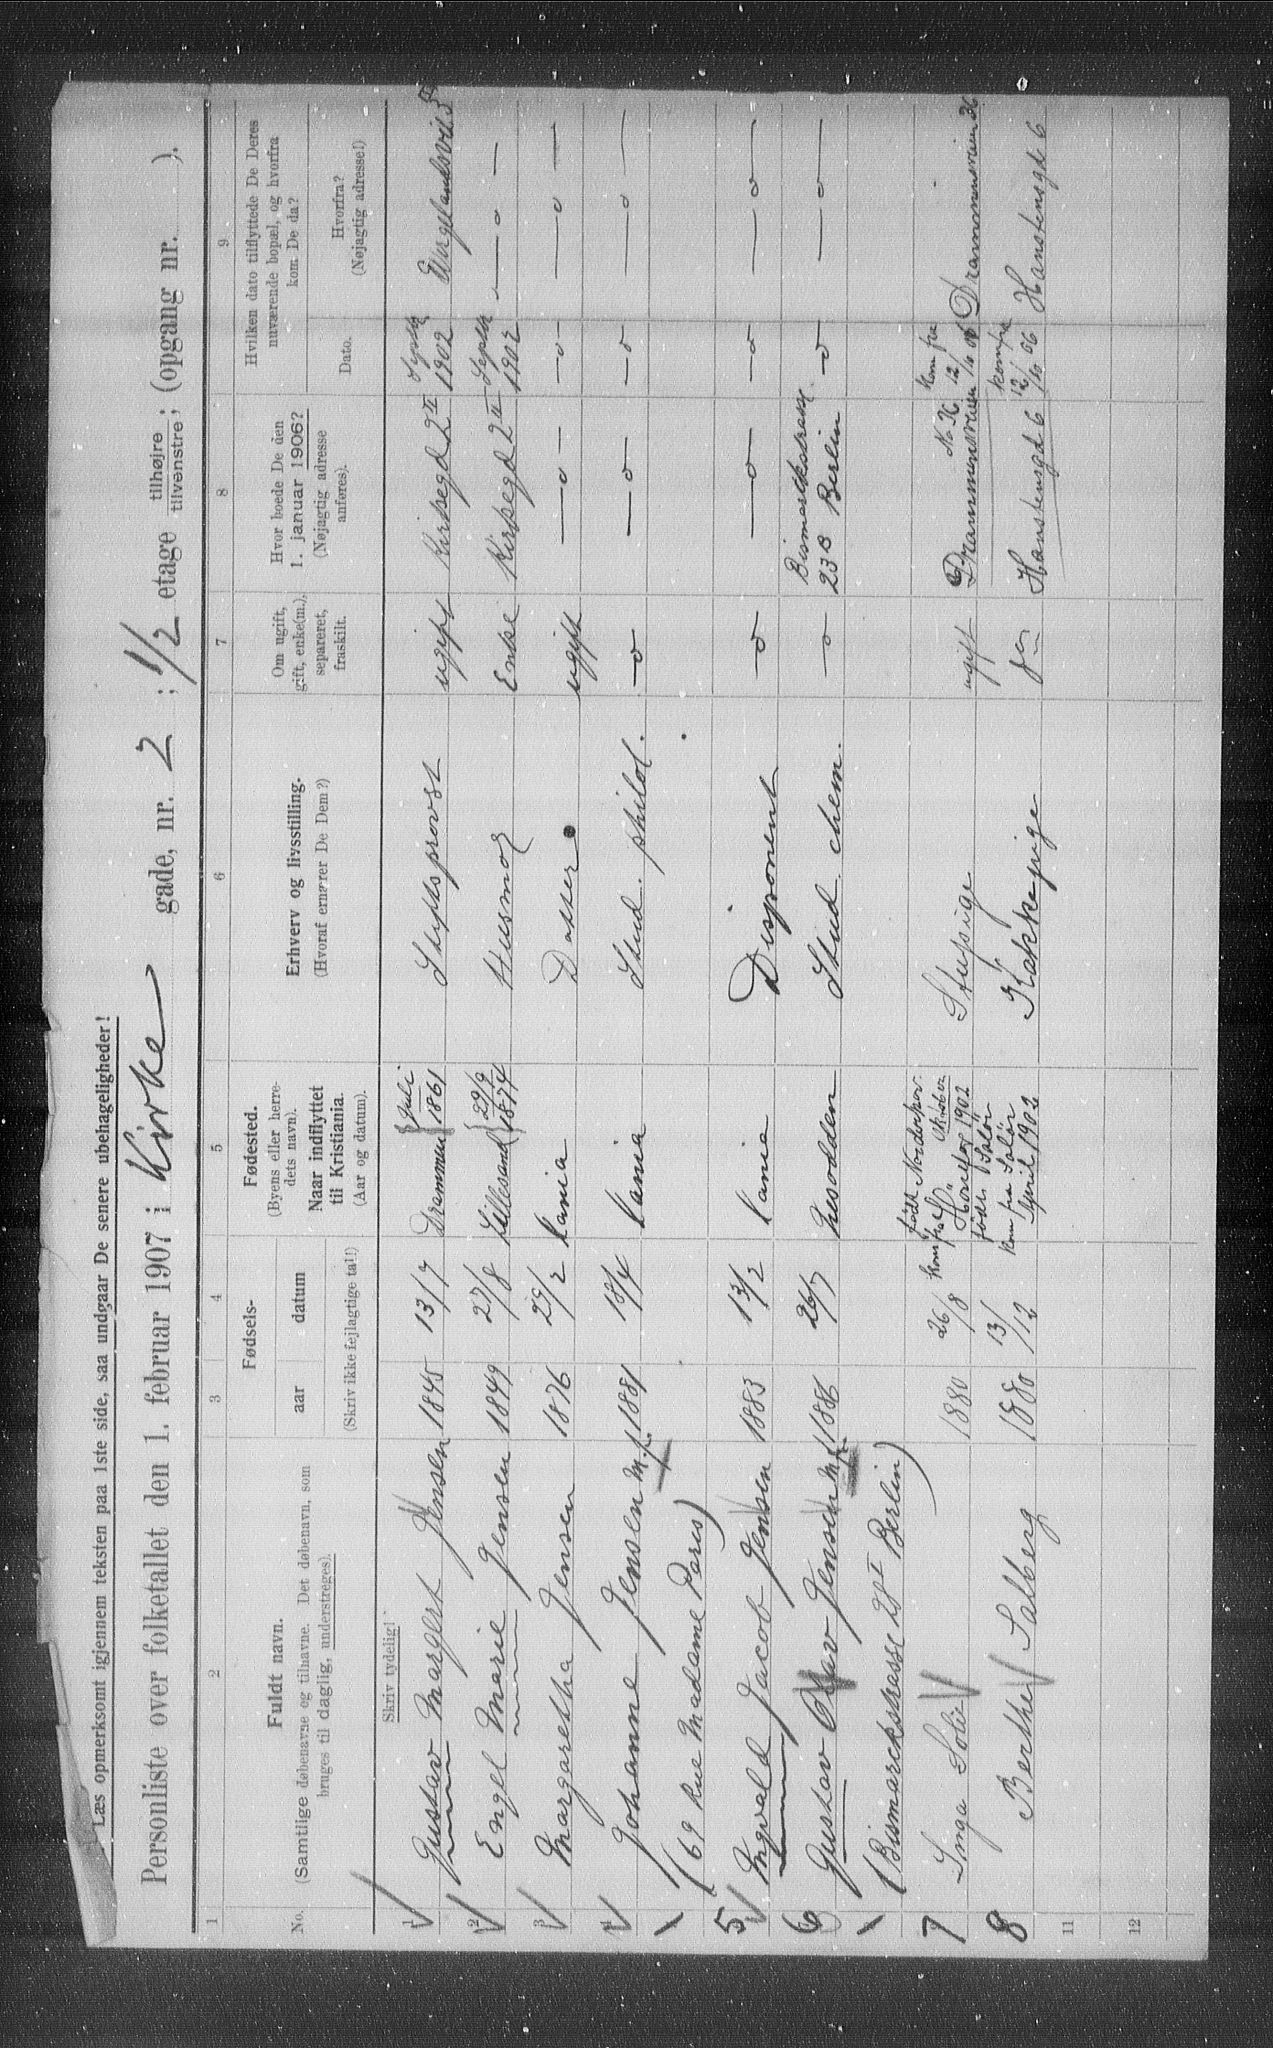 Læs opmerksomt igjennem teksten paa 1ste side, saa undgaar De senere ubehageligheder!
Personliste over folketallet den 1. februar 1907 i Kirke gade, nr. 2 ; 1/2 etage tilhøjre / tilvenstre; (opgang nr. ).
1 2 3 4 5 6 7 8 9
No.
Fuldt navn.
(Samtlige døbenavne og tilnavne. Det døbenavn, som
bruges til daglig, understreges).
Fødsels-
aar datum
(Skriv ikke fejlagtige tal!)
Fødested.
(Byens eller herre-
dets navn).
Naar indflyttet
til Kristiania.
(Aar og datum).
Erhverv og livsstilling.
(Hvoraf ernærer De Dem?)
Om ugift,
gift, enke(m.),
separeret,
fraskilt.
Hvor boede De den
1. januar 1906?
(Nøjagtig adresse
anføres).
Hvilken dato tilflyttede De Deres
nuværende bopæl, og hvorfra
kom De da?
Dato.
Hvorfra?
(Nøjagtig adresse!)
Skriv tydelig!
1 Gustav Margert Jensen 1845 13/7 Drammen Juli 1861 Stiftsprovst ugift Kirkegd 2 II Septbr 1902
2 Engel Marie Jensen 1849 27/8 Lillesand 29/9 1874 Husmor Enke Kirkegd 2 II Septbr 1902 — o —
3 Margaretha Jensen 1876 29/2 Kania Datter ugift — o — — o — — o —
4 Johanne Jensen M.f. 1881 18/4 Kania Stud. philol. — o — o — — o — — o —
(69 Rue Madame Paris)
5 Ingvald Jacob Jensen 1883 13/2 Kania Disponent — o — — o — — o — — o —
6 Gustav Olav Jensen M.f. 1886 26/7 Nesodden Stud. chem. — o — Bismarckstrasse 23 B Berlin — o — o —
(Bismarckstrasse 25 I Berlin)
7 Inga Solie 1880 26/8 født Nordrehov kom fra Hønefos Oktober 1902 Stupige ugift Drammensveien No 36 kom fra 12/10 06 Drammensveien 36
8 Berthe Salberg 1880 13/12 født i Solør kom fra Solør April 1902 Kokkepige Hanstensgd 6 kom fra 12/10 06 Hanstensgd 6
11
12